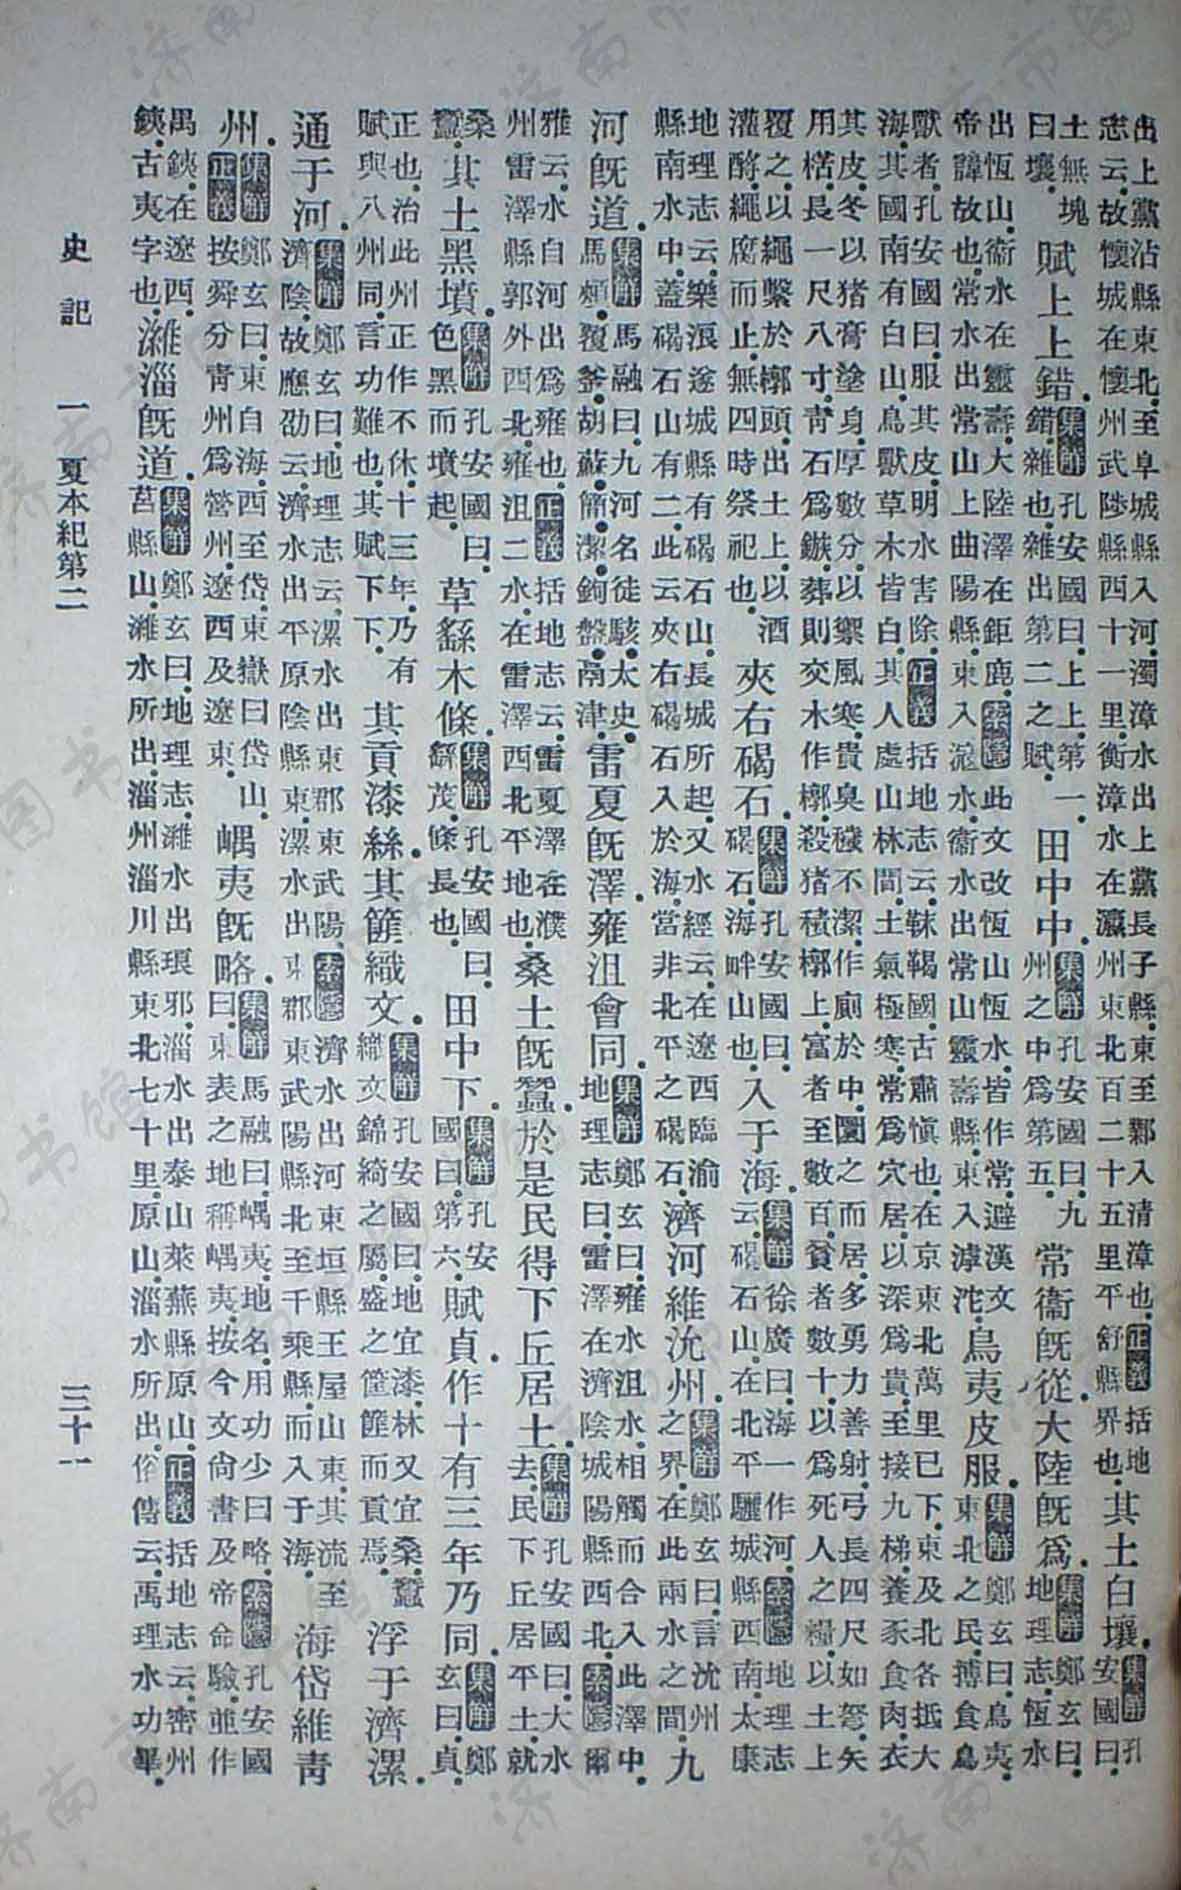 出上黨沾縣東北.至阜城縣入河.濁漳水出上黨長子縣.東至鄴入清漳也.正義括地志云.故懷城在懷州武陟縣西十一里.衡漳水在瀛州東北百二十五里平舒縣界也.其土白壤.集解孔安國曰.
土無塊曰壤.賦上上錯.集解孔安國曰.上上.第一.錯.雜也.雜出第二之賦.田中中.集解孔安國曰.九州之中爲第五.常衞既從.大陸既爲.集解鄭玄曰.地理志.恆水
出恆山.衞水在靈壽.大陸澤在鉅鹿.索隱此文改恆山恆水皆作常.避漢文帝諱故也.常水出常山上曲陽縣.東入滱水.衞水出常山靈壽縣.東入滹沱.鳥夷皮服.集解鄭玄曰.鳥夷.東北之民.搏食鳥
獸者.孔安國曰.服其皮.明水害除.正義括地志云.靺鞨國.古肅愼也.在京東北萬里已下.東及北各抵大海.其國南有白山.鳥獸草木皆白.其人處山林間.土氣極寒.常爲穴居.以深爲貴.至接九梯.養豕食肉.衣
其皮.冬以猪膏塗身.厚數分.以禦風寒.貴臭穢不潔.作廁於中.圜之而居.多勇力善射.弓長四尺如弩.矢用楛.長一尺八寸.靑石爲鏃.葬則交木作槨.殺猪積槨上.富者至數百.貧者數十.以爲死人之糧.以土上
覆之.以繩繫於槨頭.出土上.以酒灌酹.繩腐而止.無四時祭祀也.夾右碣石.集解孔安國曰.碣石.海畔山也.入于海.集解徐廣曰.海.一作河.索隱地理志云.碣石山.在北平驪城縣西南.太康
地理志云.樂浪遂城縣有碣石山.長城所起.又水經云.在遼西臨渝縣南水中.蓋碣石山有二.此云夾右碣石入於海.當非北平之碣石.濟河維沇州.集解鄭玄曰.言沇州之界.在此兩水之間.九
河既道.集解馬融曰.九河名徒駭.太史.馬頰.覆釜.胡蘇.簡.潔.鉤盤.鬲津.雷夏既澤.雍沮會同.集解鄭玄曰.雍水沮水.相觸而合入此澤中.地理志曰.雷澤在濟陰城陽縣西北.索隱爾
雅云.水自河出爲雍也.正義括地志云.雷夏澤在濮州雷澤縣郭外西北.雍沮二水.在雷澤西北平地也.桑土既蠶.於是民得下丘居土.集解孔安國曰.大水去.民下丘居平土.就
桑蠶.其土黑墳.集解孔安國曰.色黑而墳起.草繇木條.集解孔安國曰.繇.茂.條.長也.田中下.集解孔安國曰.第六.賦貞.作十有三年乃同.集解鄭玄曰.貞.
正也.治此州正作不休.十三年.乃有賦與八州同.言功難也.其賦下下.其貢漆絲.其篚織文.集解孔安國曰.地宜漆林.又宜桑蠶織文.錦綺之屬.盛之筐篚而貢焉.浮于濟漯.
通于河.集解鄭玄曰.地理志云.漯水出東郡東武陽.索隱濟水出河東垣縣王屋山東.其流至濟陰.故應劭云.濟水出平原陰縣東.漯水出東郡東武陽縣.北至千乘縣.而入于海.海岱維靑
州.集解鄭玄曰.東自海.西至岱.東嶽曰岱山.正義按舜分靑州爲營州.遼西及遼東.嵎夷既略.集解馬融曰.嵎夷.地名.用功少曰略.索隱孔安國曰.東表之地稱嵎夷.按今文尙書及帝命驗.並作
禺銕.在遼西.銕.古夷字也.濰淄既道.集解鄭玄曰.地理志.濰水出琅邪.淄水出泰山萊蕪縣原山.正義括地志云.密州莒縣山.濰水所出.淄州淄川縣東北七十里原山.淄水所出.俗傳云.禹理水功畢.
史記 一 夏本紀第二 三十一